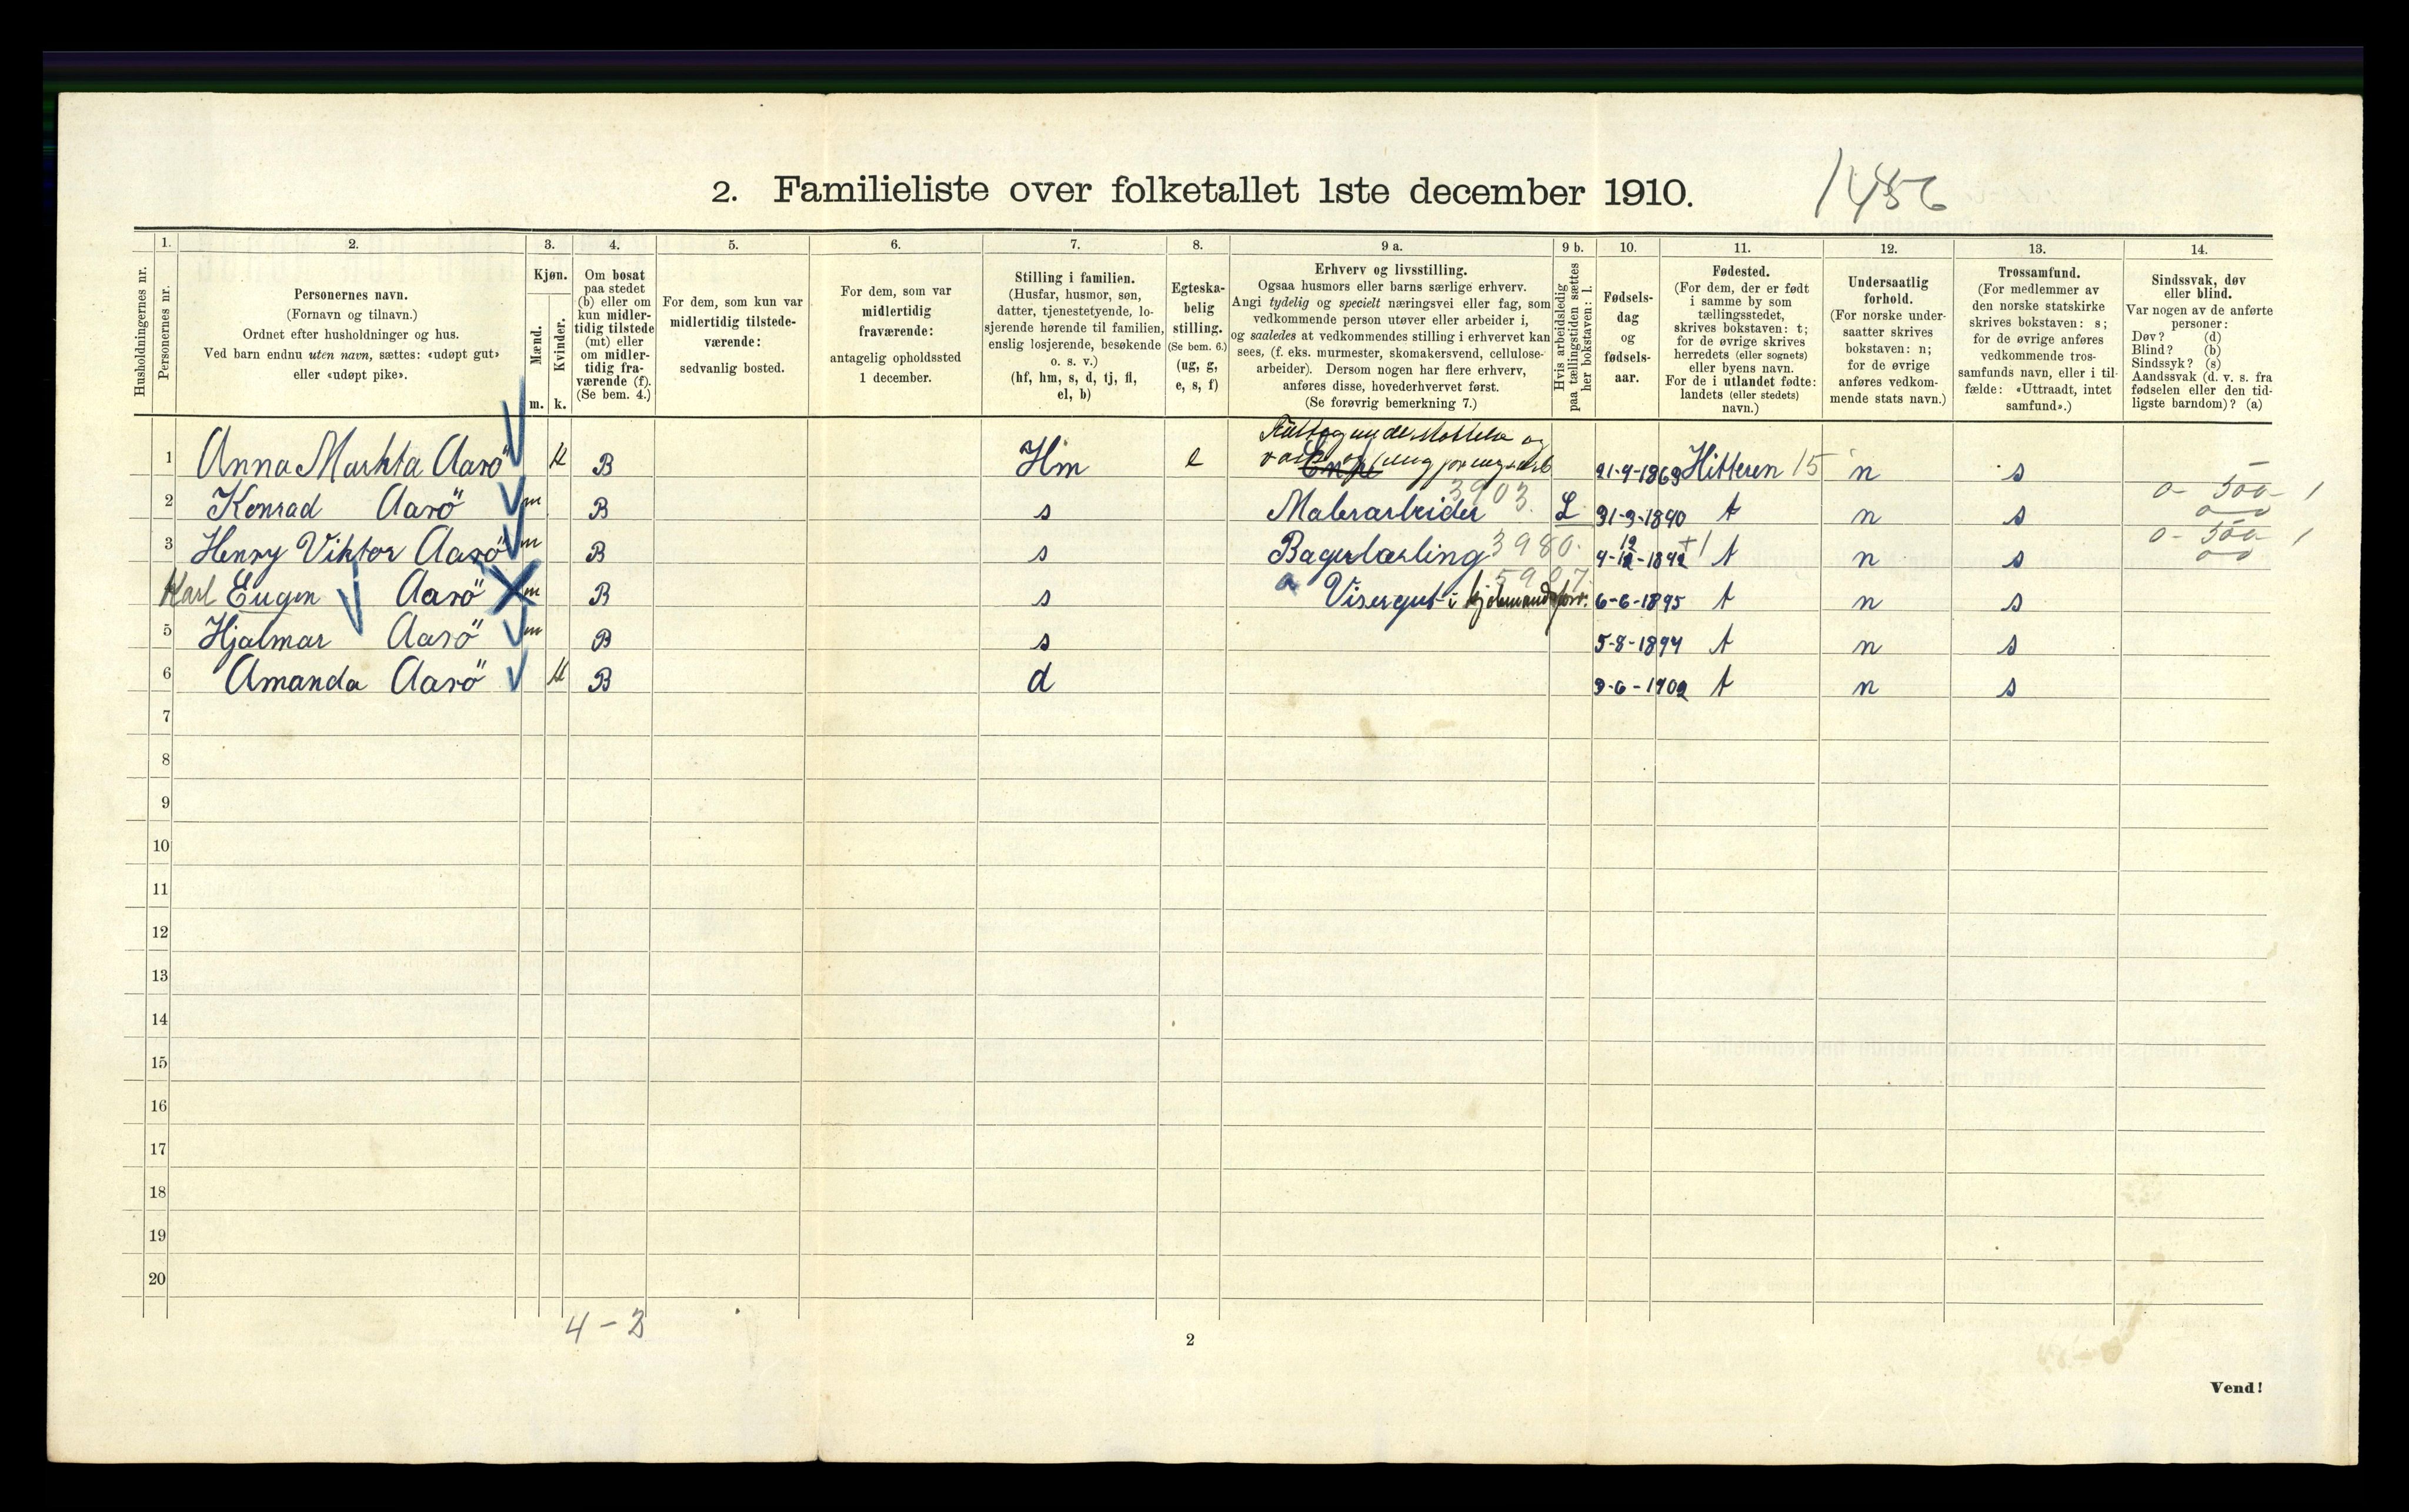 2. Familieliste over folketallet 1ste december 1910.
1456
Husholdningernes nr.
1.
Personernes nr.
2.
Personernes navn.
(Fornavn og tilnavn.)
Ordnet efter husholdninger og hus.
Ved barn endnu uten navn, sættes: «udøpt gut»
eller «udøpt pike».
3.
Kjøn.
Mænd.
Kvinder.
m. k.
4.
Om bosat
paa stedet
(b) eller om
kun midler-
tidig tilstede
(mt) eller
om midler-
tidig fra-
værende (f).
(Se bem. 4.)
5.
For dem, som kun var
midlertidig tilstede-
værende:
sedvanlig bosted.
6.
For dem, som var
midlertidig
fraværende:
antagelig opholdssted
1 december.
7.
Stilling i familien.
(Husfar, husmor, søn,
datter, tjenestetyende, lo-
sjerende hørende til familien,
enslig losjerende, besøkende
o. s. v.)
(hf, hm, s, d, tj, fl,
el, b)
8.
Egteska-
belig
stilling.
(Se bem. 6.)
(ug, g,
e, s, f)
9 a.
Erhverv og livsstilling.
Ogsaa husmors eller barns særlige erhverv.
Angi tydelig og specielt næringsvei eller fag, som
vedkommende person utøver eller arbeider i,
og saaledes at vedkommendes stilling i erhvervet kan
sees, (f. eks. murmester, skomakersvend, cellulose-
arbeider). Dersom nogen har flere erhverv,
anføres disse, hovederhvervet først.
(Se forøvrig bemerkning 7.)
9 b.
Hvis arbeidsledig
paa tællingstiden sættes
her bokstaven: l.
10.
Fødsels-
dag
og
fødsels-
aar.
11.
Fødested.
(For dem, der er født
i samme by som
tællingsstedet,
skrives bokstaven: t;
for de øvrige skrives
herredets (eller sognets)
eller byens navn.
For de i utlandet fødte:
landets (eller stedets)
navn.)
12.
Undersaatlig
forhold.
(For norske under-
saatter skrives
bokstaven: n;
for de øvrige
anføres vedkom-
mende stats navn.)
13.
Trossamfund.
(For medlemmer av
den norske statskirke
skrives bokstaven: s;
for de øvrige anføres
vedkommende tros-
samfunds navn, eller i til-
fælde: «Uttraadt, intet
samfund».)
14.
Sindssvak, døv
eller blind.
Var nogen av de anførte
personer:
Døv? (d)
Blind? (b)
Sindssyk? (s)
Aandssvak (d. v. s. fra
fødselen eller den tid-
ligste barndom)? (a)
1 Anna Markta Aasö k B Hm e 21-9-1863 Hitteren 15 n s
2 Konrad Aasö m B s Malerarbeider 3903. L 31-3-1890 t n s 0- 500- 1
3 Henry Viktor Aasö m B s Bagerlærling 3980. 4-12-1892 t n s 0- 500- 1
Karl Eugen Aasö m B s Visergut i 6-6-1895 t n s
5 Hjalmar Aasö m B s 5-8-1894 t n s
6 Amanda Aasö k B d 3-6-1902 t n s
7
8
9
10
11
12
13
14
15
16
17
18
19
20
4-2
2
Vend!